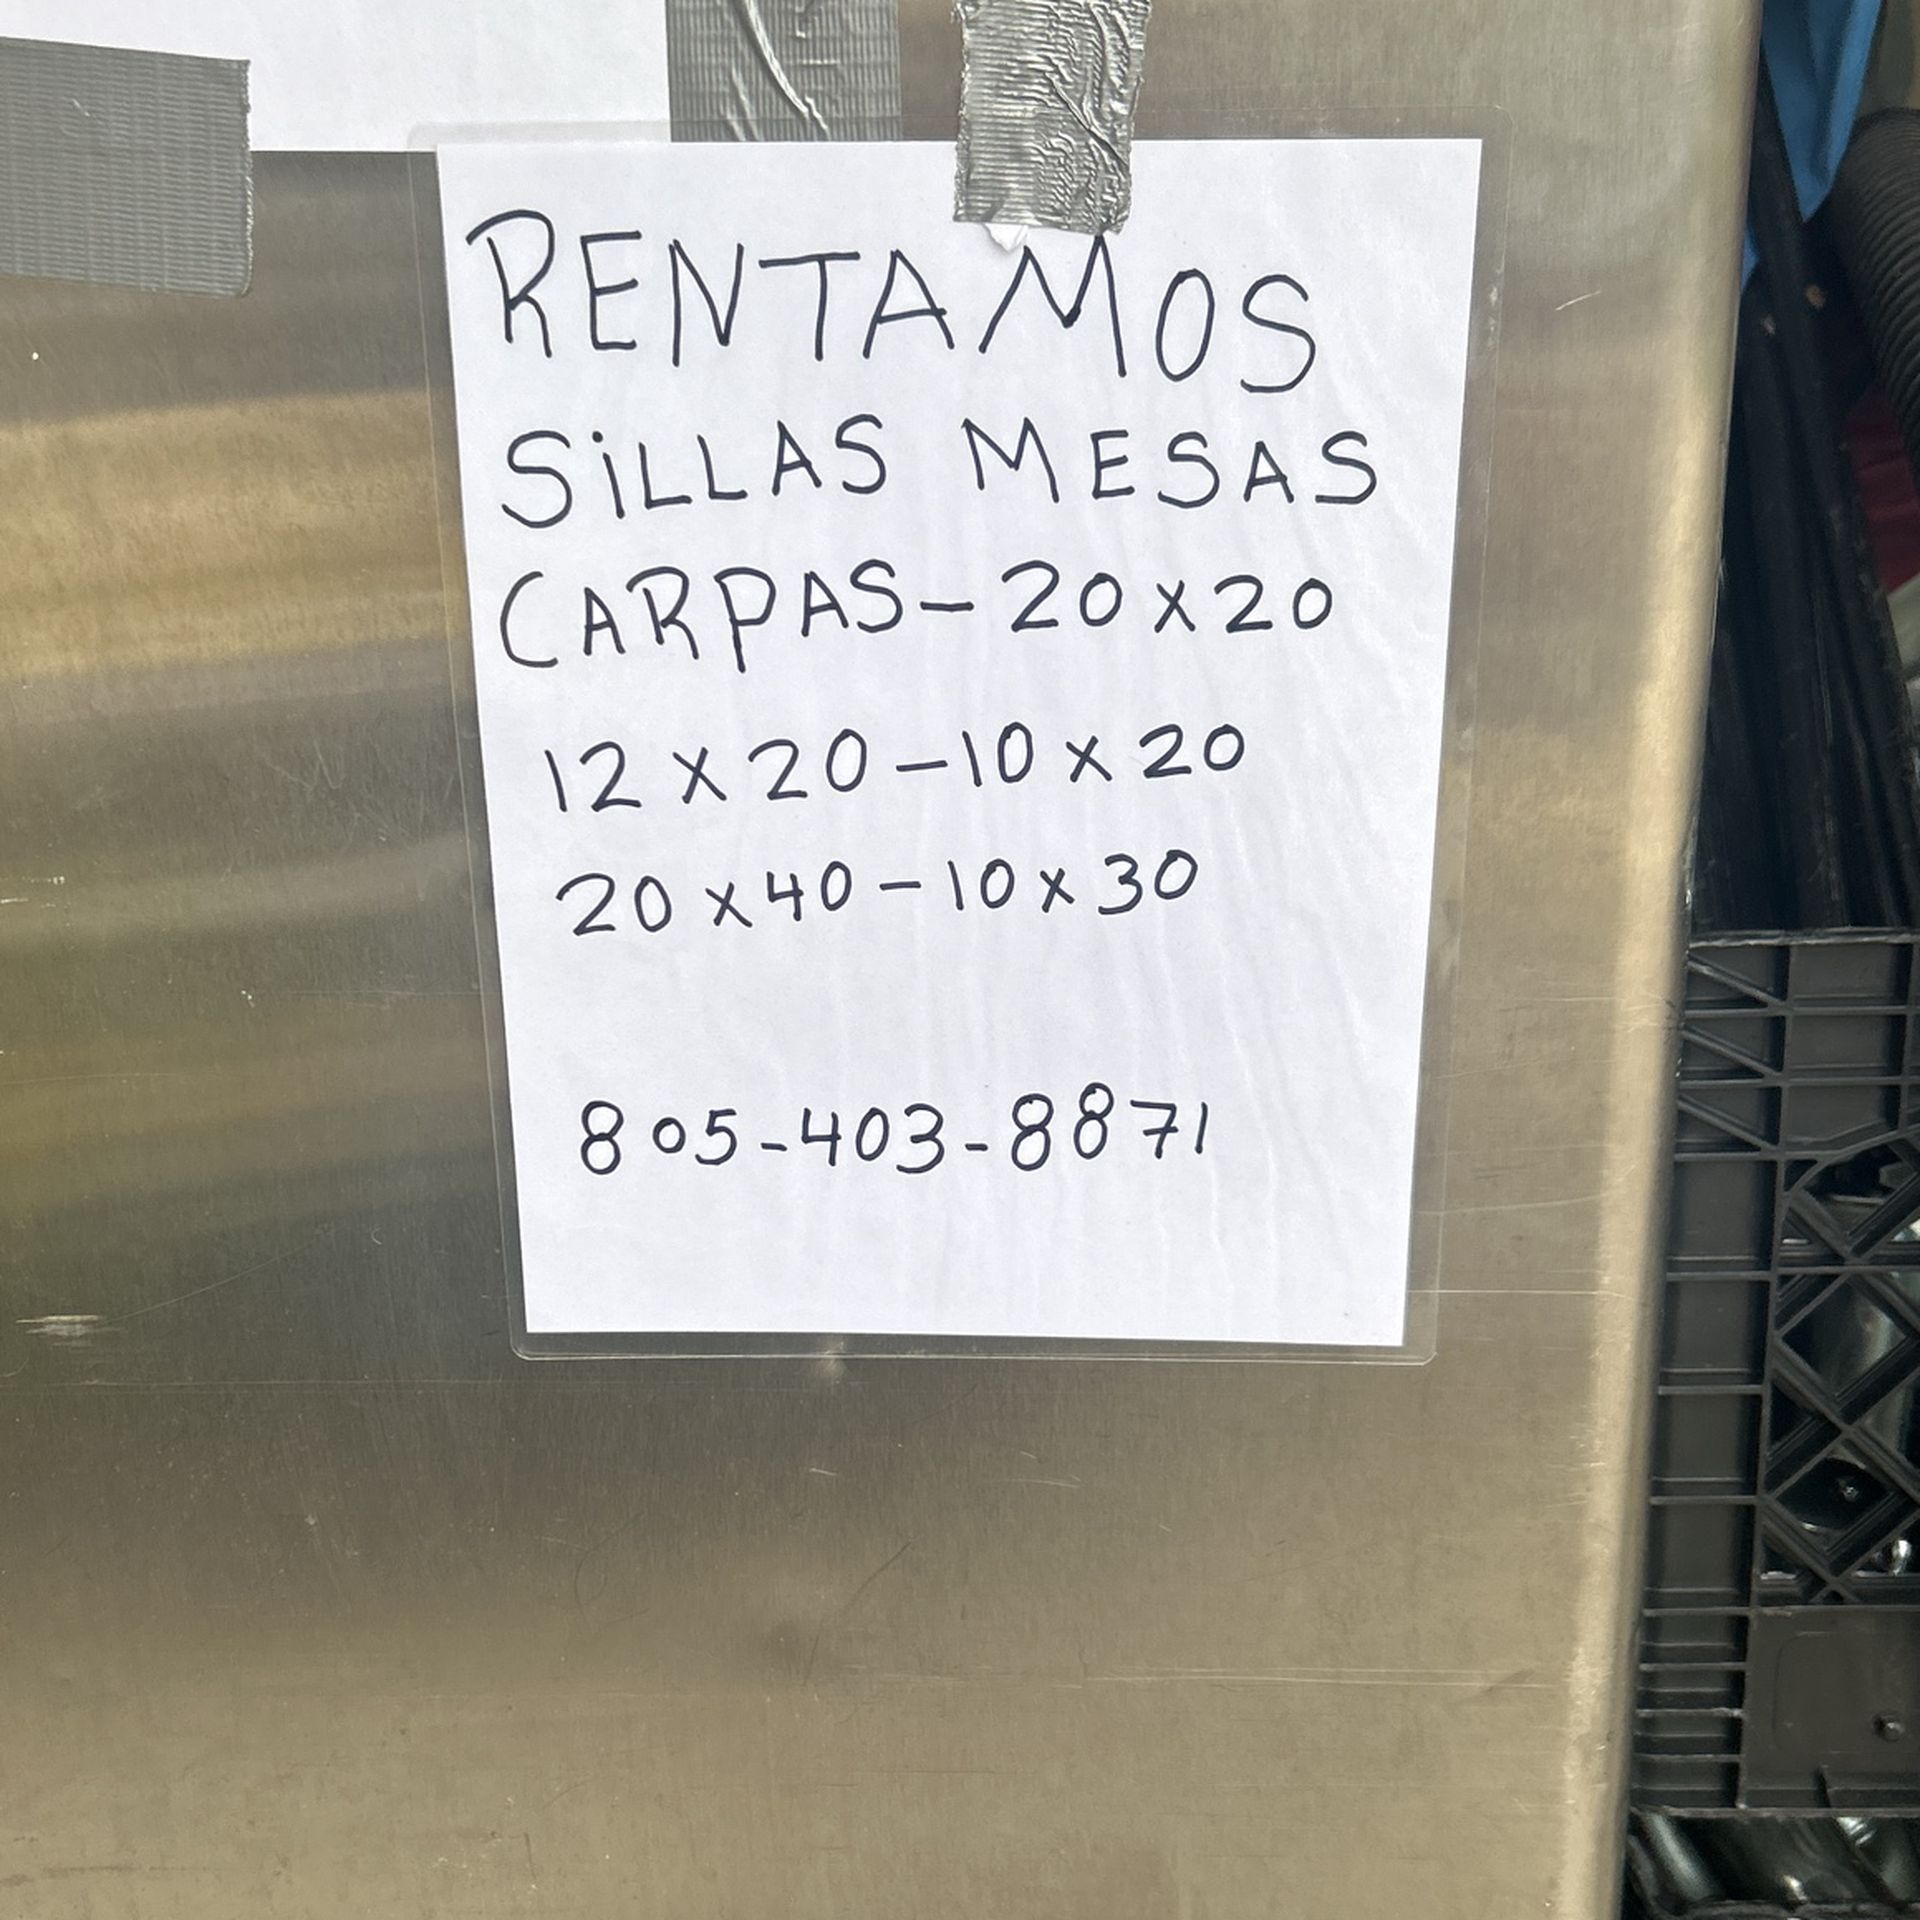 RENTAMOS
SiLLAS MESAS
CARPAS-20x20
12x20-10x20
20x40-10x30
805-403-8871